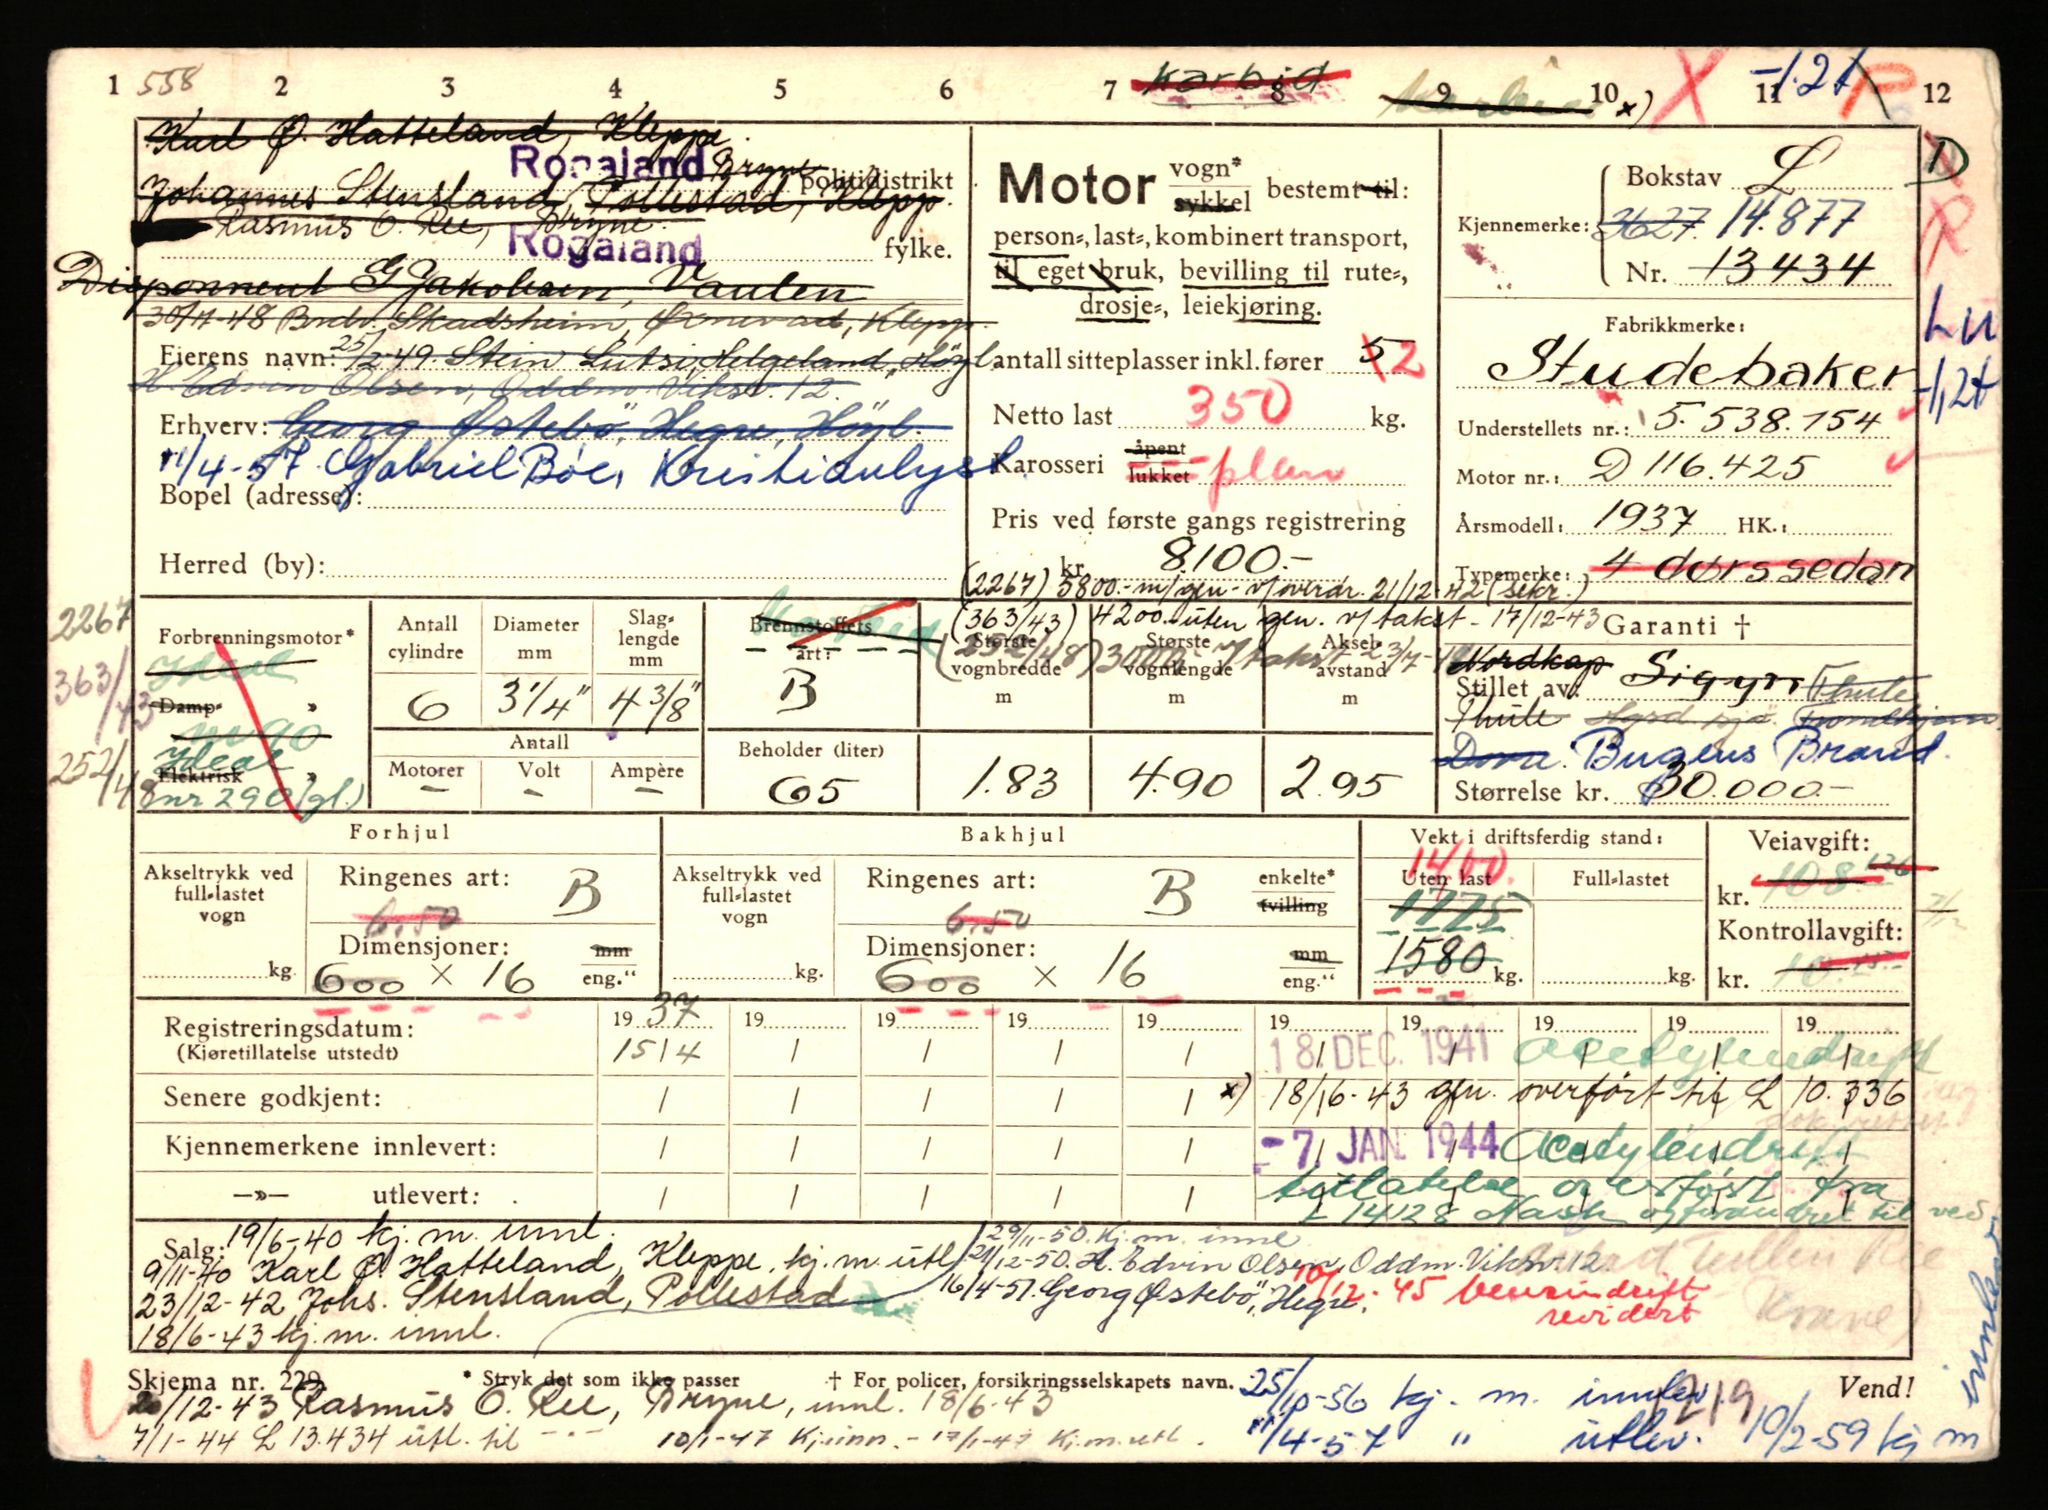 1 558 2 3 4 5 6 7 karbid 8 9 10 x) 11 -1.2t 12
Karl Ø. Hatteland, Kleppe.
Rogaland politidistrikt
Bryne
Johannes Stensland, Pollestad, Klepp.
Rasmus O. Ree, Bryne.
Rogaland fylke.
Disponent G Jakobsen, Vaulen
Eierens navn: 25/2-49. Stein Lutsi, Helgeland, Høyl.
H. Edvin Olsen, Oddm. Viksv. 12.
Erhverv: Georg Østebö, Hegre, Höyl.
11/4-57. Gabriel Bøe, Kristianlyst
Bopel (adresse):
Herred (by):
Motor vogn* sykkel bestemt til:
person-, last-, kombinert transport,
til eget bruk, bevilling til rute-,
drosje-, leiekjøring.
antall sitteplasser inkl. fører 5 2
Netto last 350 kg.
Karosseri åpent lukket plan
Pris ved første gangs registrering
kr. 8.100.-
(2267) 5800.- m/gen. v/overdr. 21/12-42 (sekr.)
(363/43) 4200.- uten gen. v/takst - 17/12-43
Kjennemerke: Bokstav L
3627. 14.877
Nr. 13434
D
Lu
-1,2t
Fabrikkmerke:
Studebaker
Understellets nr.: 5.538.154
Motor nr.: D 116.425
Årsmodell: 1937 HK.:
Typemerke: 4 dørs sedan
2267
363/43
252/48
Forbrenningsmotor*
Ideal
Damp- »
nr 90
Ideal
Elektrisk »
nr 290 (gl.)
Antall cylindre 6
Diameter mm 3 1/4"
Slag-lengde mm 4 3/8"
Antall
Motorer - Volt - Ampère -
Brennstoffets art: B
Beholder (liter) 65
Største vognbredde m 1.83
Største vognlengde m 4.90
Aksel-avstand m 2.95
Garanti †
Nordkap
Stillet av: Sigyn Thule
Thule
Dova. Bugens Brand.
Størrelse kr. 30.000.-
Forhjul
Akseltrykk ved full-lastet vogn kg.
Ringenes art: B
6.50
Dimensjoner: 600 x 16 mm eng."
Bakhjul
Akseltrykk ved full-lastet vogn kg.
Ringenes art: B enkelte* tvilling
6.50
Dimensjoner: 600 x 16 mm eng."
Vekt i driftsferdig stand:
1400.
Uten last
1775
1580 kg.
Full-lastet
kg.
Veiavgift:
kr. 108.- 126
Kontrollavgift:
kr. 10.- 15.-
Registreringsdatum: 19 37 19 19 19 19 19 19 19 19 19
(Kjøretillatelse utstedt) 15/4 18. DEC. 1941 Acetylendrift
Senere godkjent: x) 18/6-43 gen. overført til L 10.336
Kjennemerkene innlevert: -7. JAN. 1944 Acetylendrift
—»— utlevert: tillatelse overført fra
L 14128 Nash og forandret til ved
Salg: 19/6-40 kj. m. innl.
9/11-40 Karl Ø. Hatteland, Kleppe, kj. m. utl.
23/12-42 Johs. Stensland, Pollestad
18/6-43 kj. m. innl.
29/11-50. Kj. m. innl
21/12-50. H. Edvin Olsen, Oddm. Viksv. 12.
16/4-51. Georg Østebö, Hegre.
10/12-45 bensindrift
revidert
Skjema nr. 229 * Stryk det som ikke passer † For policer, forsikringsselskapets navn. Vend!
20/12-43 Rasmus O. Ree, Bryne, innl. 18/6-43
7/1-44 L 13.434 utl. til - " -
10/1-47 Kj. inn. - 17/1-47 kj. m. utl.
25/10-56 kj. m. innlev.
1219
11/4-57 " utlev.
10/2-59 kj m
innlev